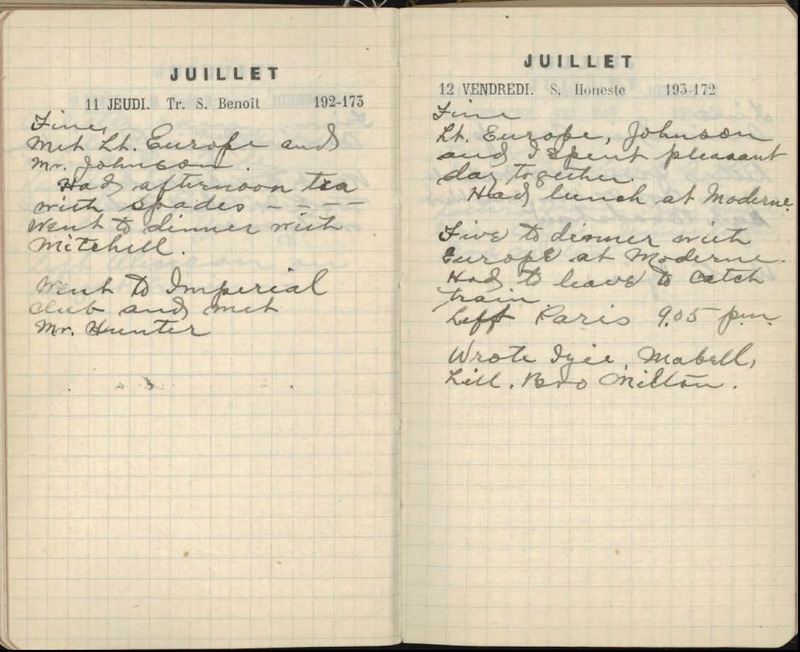 JUILLET
11 JEUDI. Tr. S. Benoit 192-173
Fine,
Met Lt. Europe and
Mr. Johnson.
Had afternoon tea
with spades - - - -
Went to dinner with
Mitchell.
Went to Imperial
Club and met
Mr. Hunter
JUILLET
12 VENDREDI. S. Honeste 193-172
Fine
Lt. Europe, Johnson
and I spent pleasant
day together.
Had lunch at Moderne.
Five to dinner with
Europe at Moderne.
Had to leave to catch
train
Left Paris 9.05 pm.
Wrote Mabell,
Lill. Bro Milton.